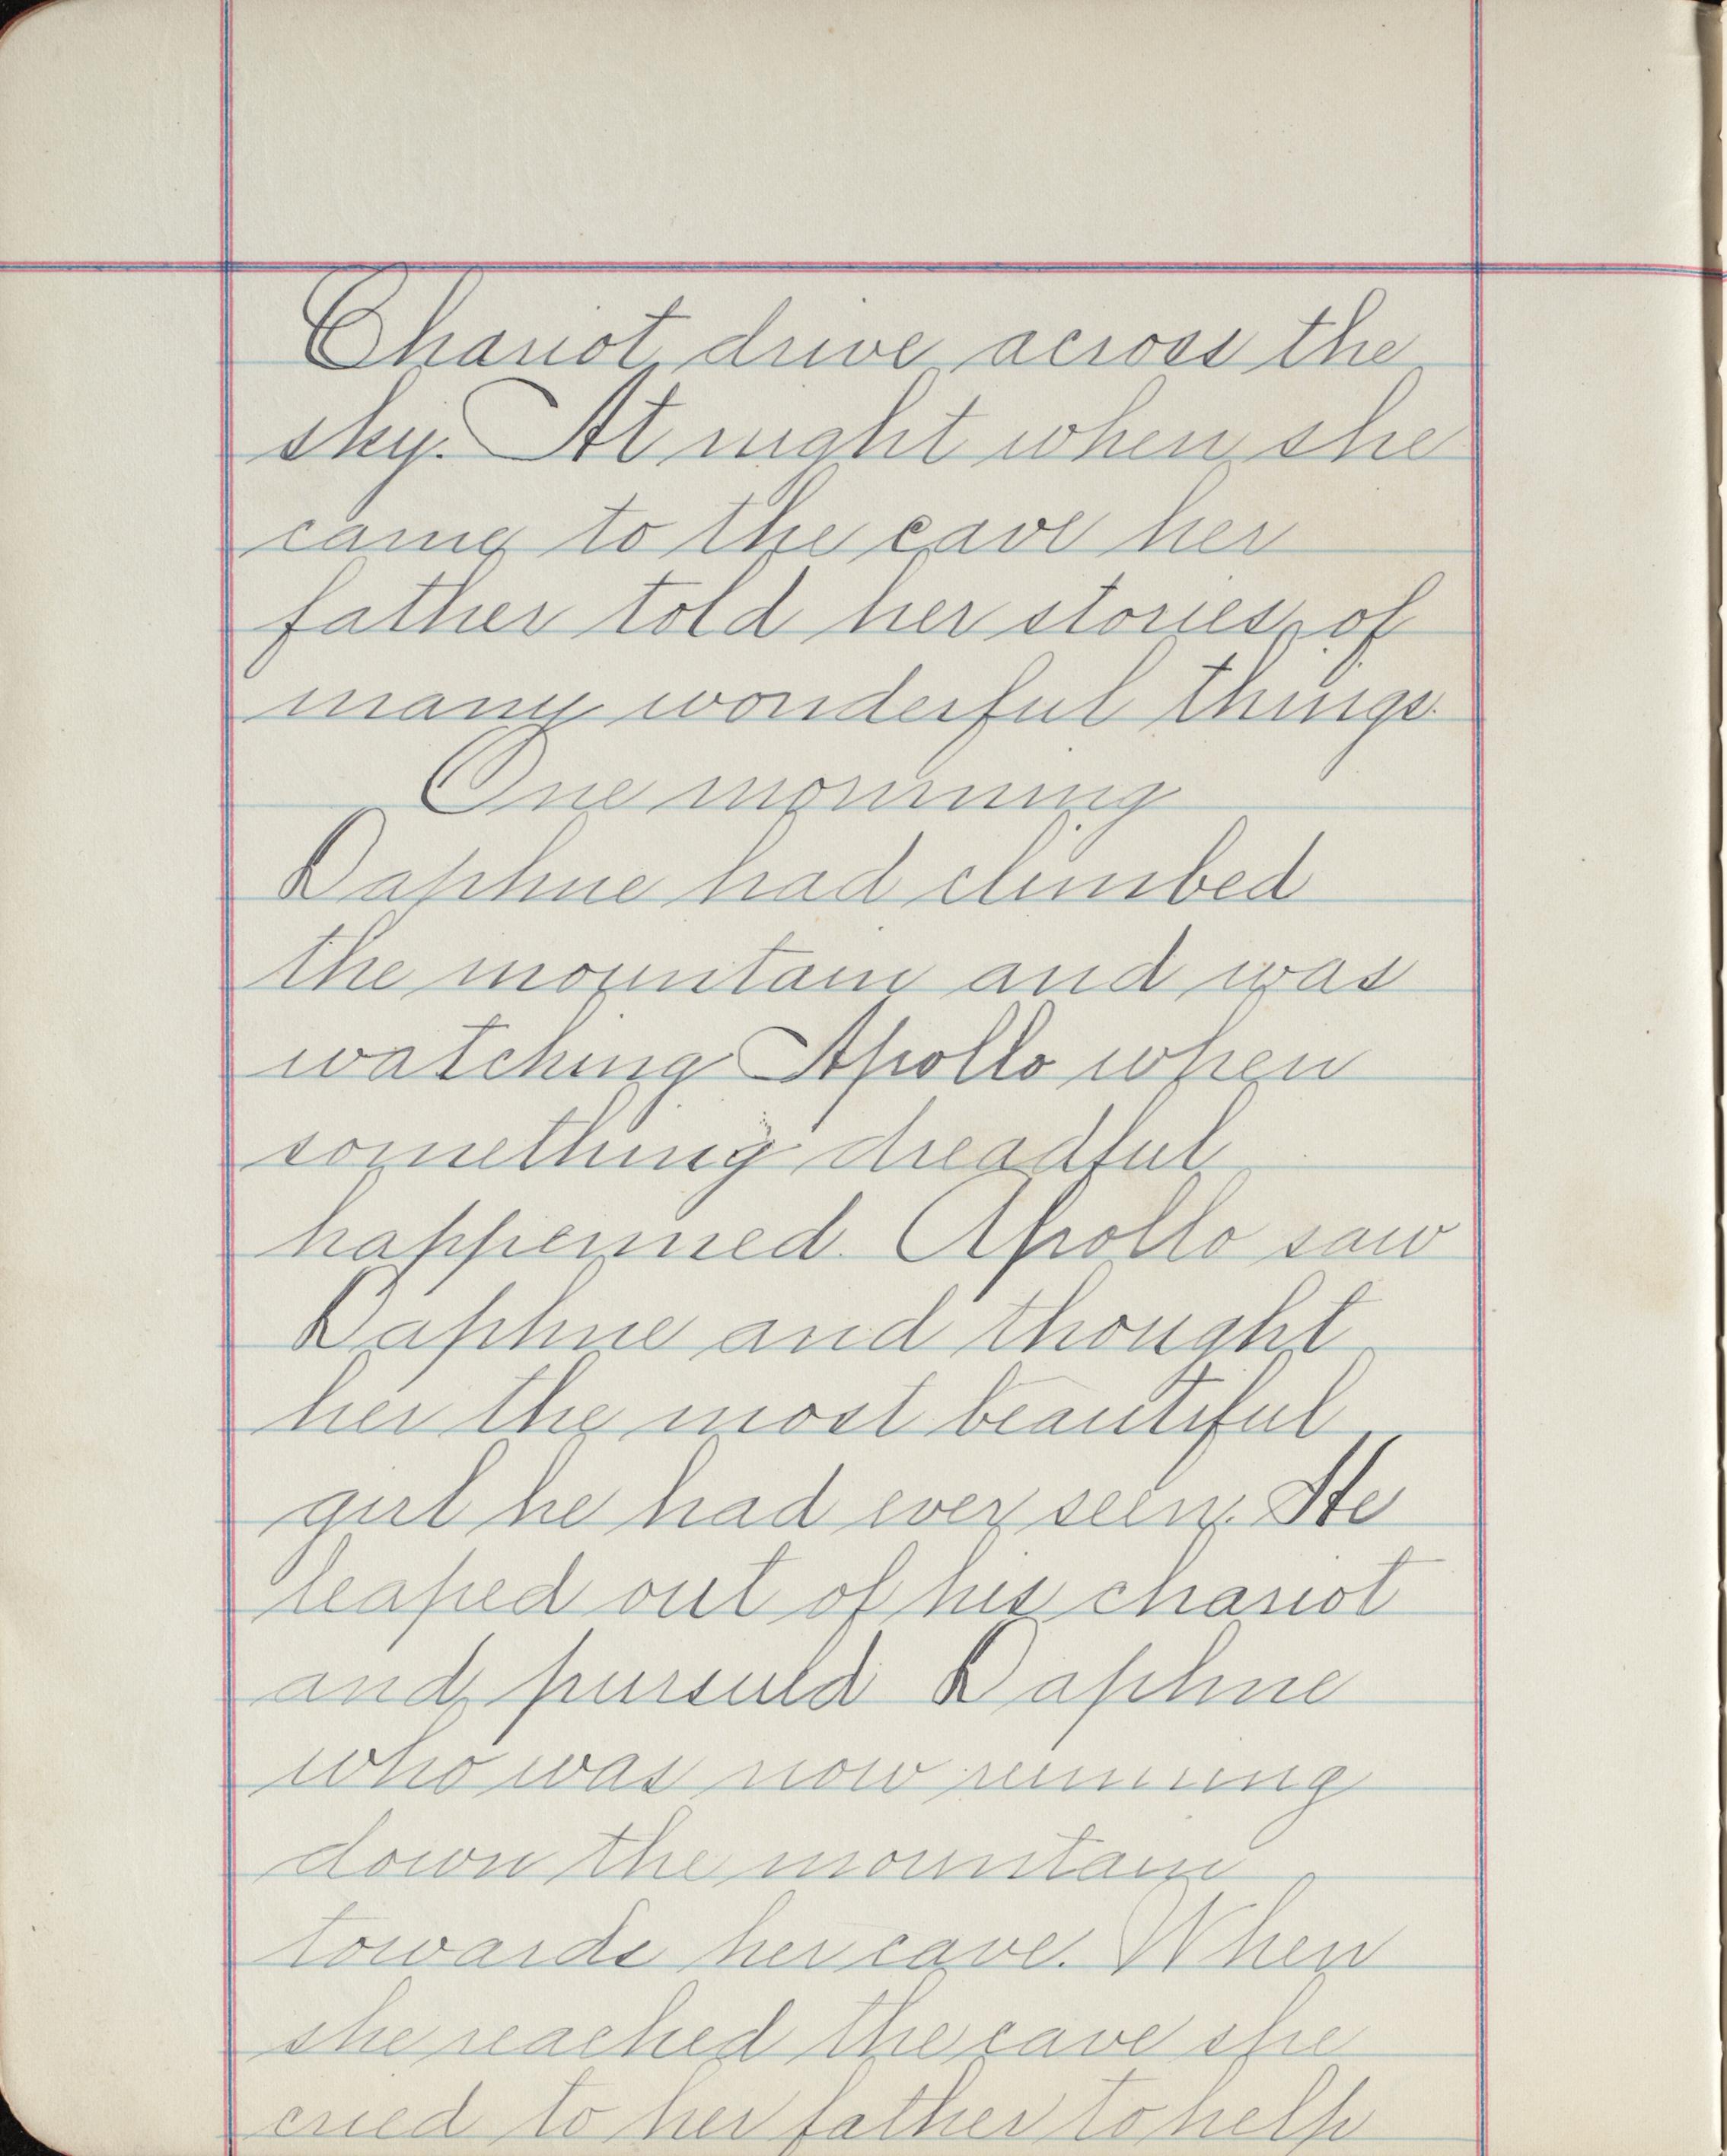 Chariot drive across the
sky. At night when she
came to the cave her
father told her stories of
many wonderful things.
One mornning
Daphne had climbed
the mountain and was
watching Apollo when
something dreadful
happenned. Apollo saw
Daphne and thought
her the most beautiful
girl he had ever seen. He
leaped out of his chariot
and pursued Daphne
who was now running
down the mountain
towards her cave. When
she reached the cave she
cried to her father to help